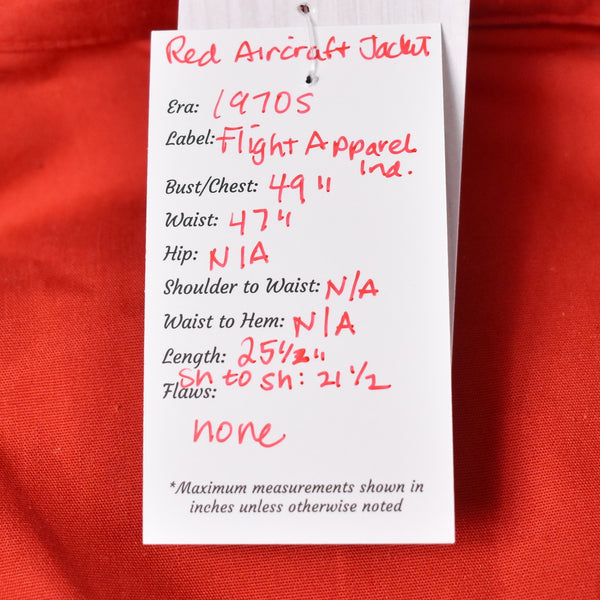 Red Aircraft Jacket
Era: 1970s
Label: Flight Apparel
Ind.
Bust/Chest: 49"
Waist: 47"
Hip: N/A
Shoulder to Waist: N/A
Waist to Hem: N/A
Length: 25 1/2"
Sh to Sh: 21 1/2
Flaws:
none
*Maximum measurements shown in
inches unless otherwise noted